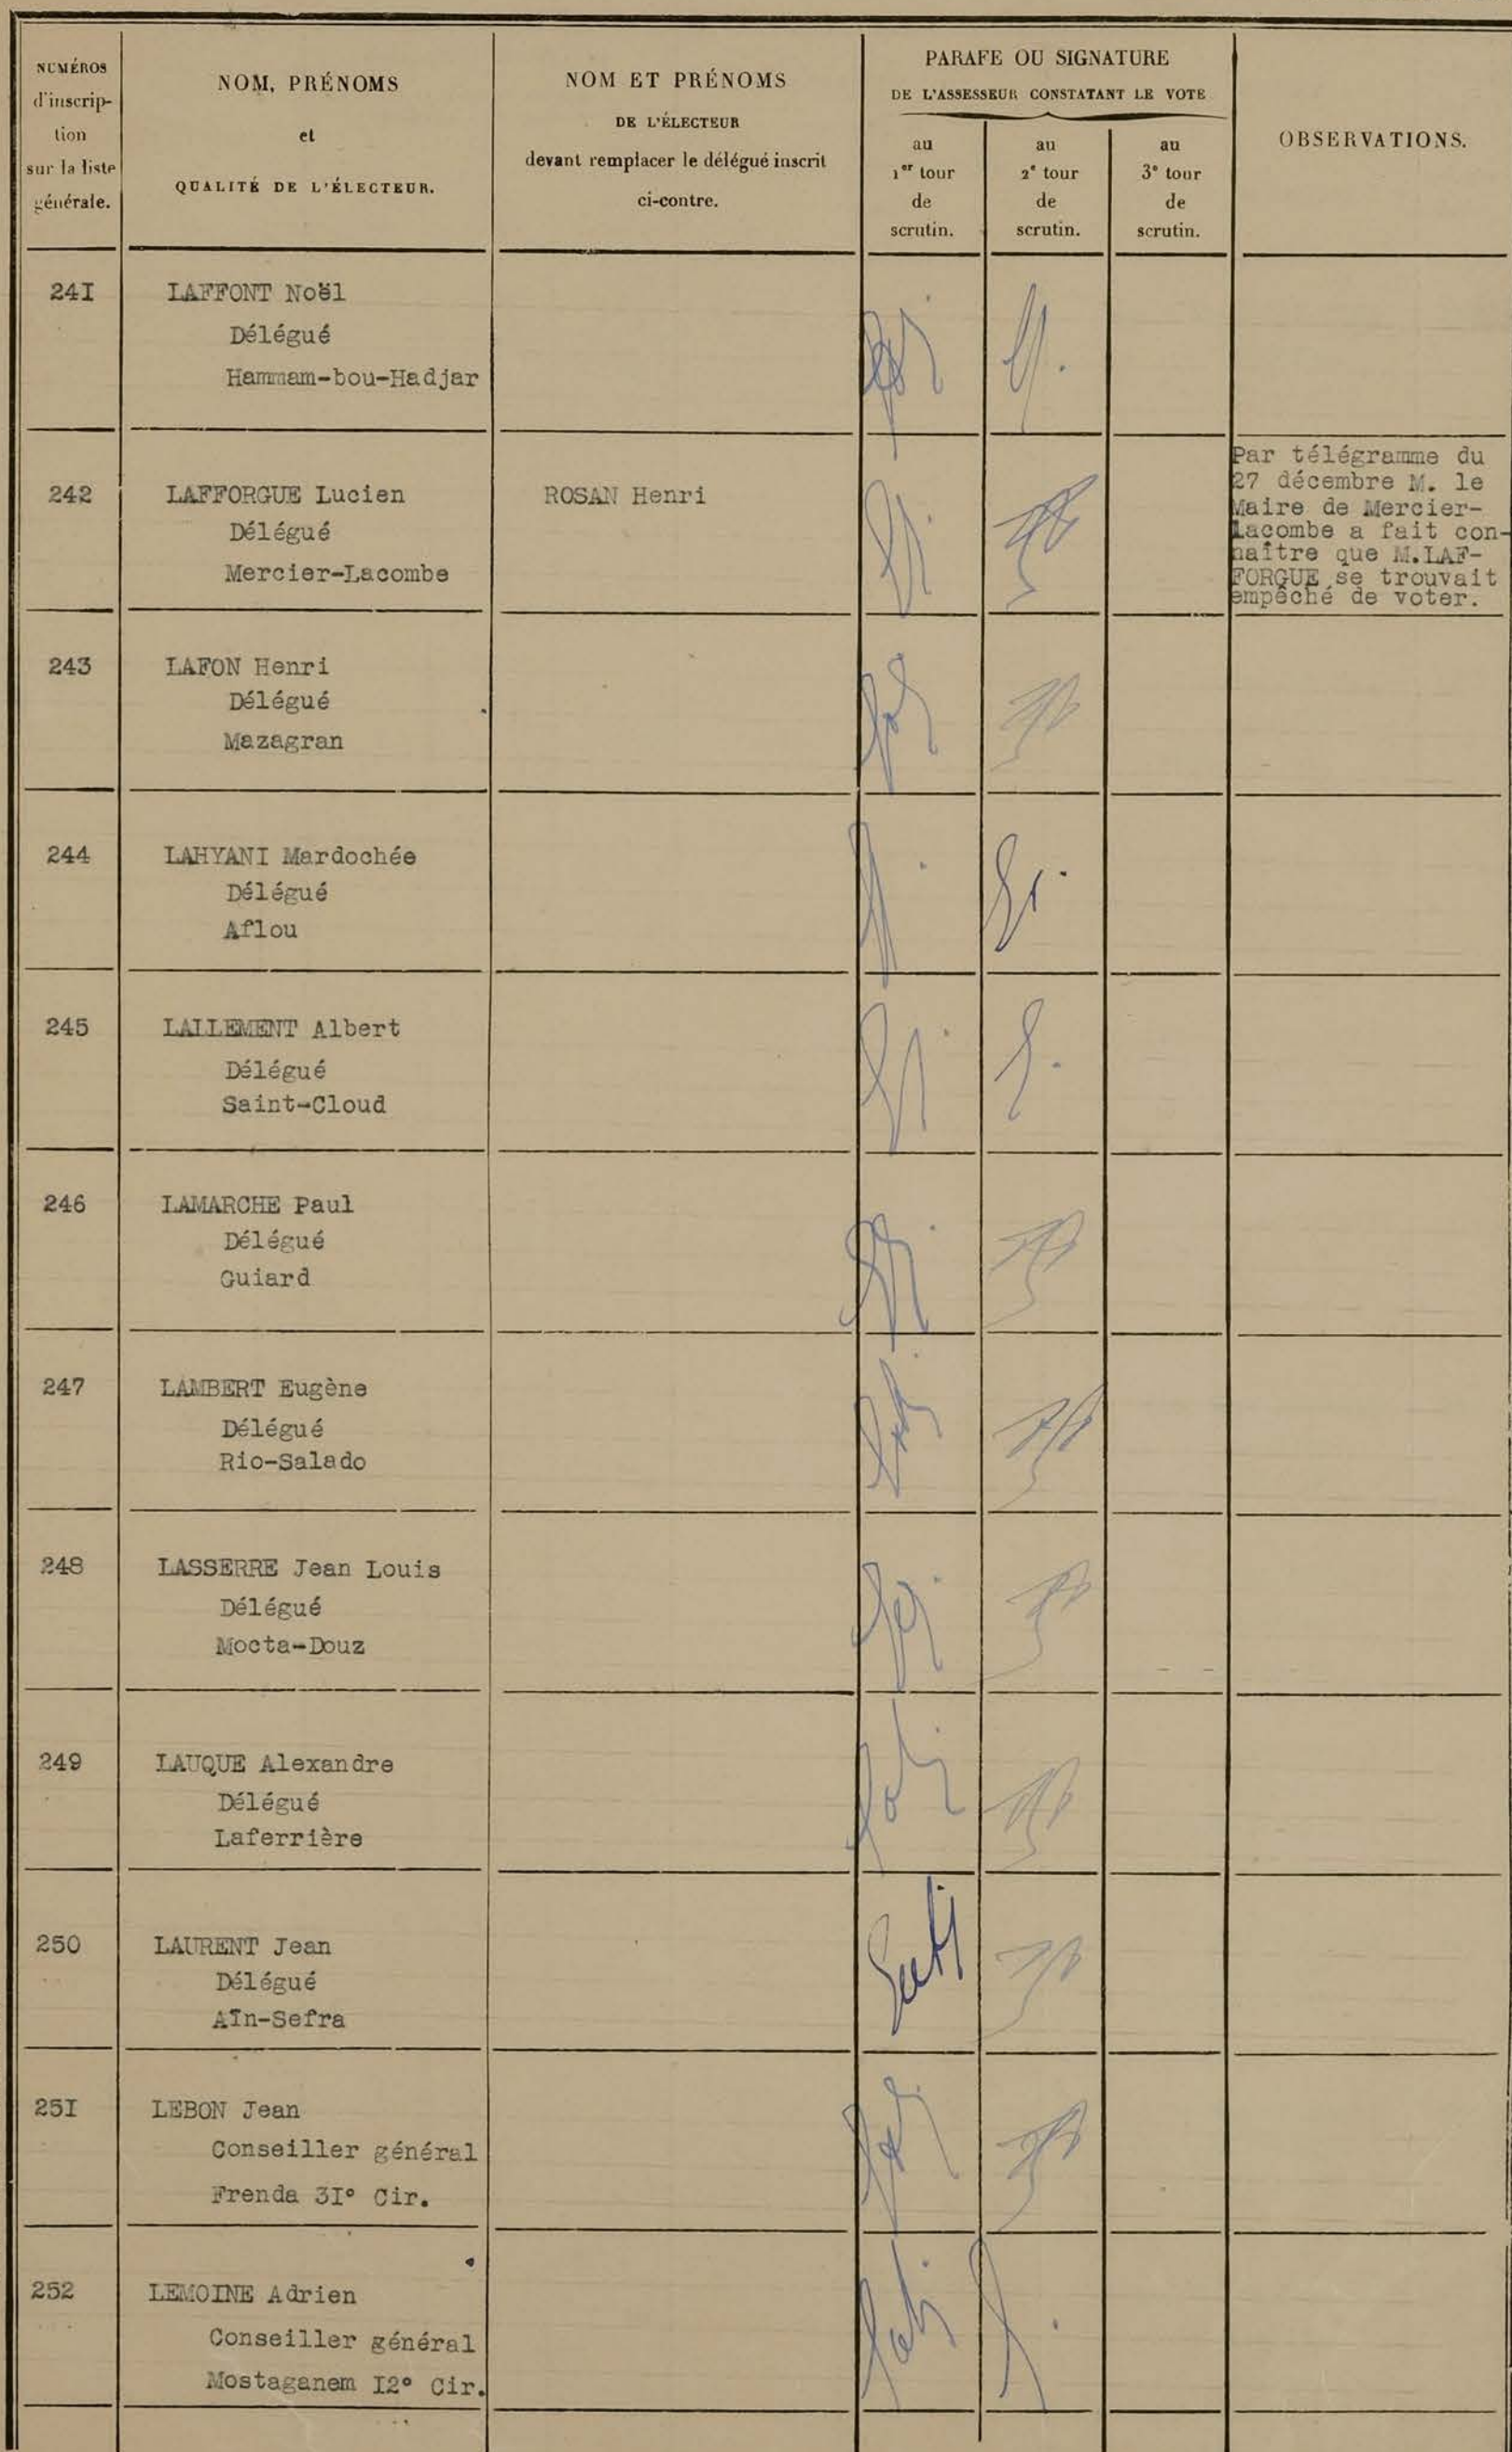 NUMÉROS
d'inscrip-
tion
sur la liste
générale.
NOM, PRÉNOMS
et
QUALITÉ DE L'ÉLECTEUR.
NOM ET PRÉNOMS
DE L'ÉLECTEUR
devant remplacer le délégué inscrit
ci-contre.
PARAFE OU SIGNATURE
DE L'ASSESSEUR CONSTATANT LE VOTE
au
1er tour
de
scrutin.
au
2e tour
de
scrutin.
au
3e tour
de
scrutin.
OBSERVATIONS.
24I
LAFFONT Noël
Délégué
Hammam-bou-Hadjar
242
LAFFORGUE Lucien
Délégué
Mercier-Lacombe
ROSAN Henri
Par télégramme du
27 décembre M. le
Maire de Mercier-
Lacombe a fait con-
naître que M.LAF-
FORGUE se trouvait
empêché de voter.
243
LAFON Henri
Délégué
Mazagran
244
LAHYANI Mardochée
Délégué
Aflou
245
LALLEMENT Albert
Délégué
Saint-Cloud
246
LAMARCHE Paul
Délégué
Guiard
247
LAMBERT Eugène
Délégué
Rio-Salado
248
LASSERRE Jean Louis
Délégué
Mocta-Douz
249
LAUQUE Alexandre
Délégué
Laferrière
250
LAURENT Jean
Délégué
Aïn-Sefra
25I
LEBON Jean
Conseiller général
Frenda 3I° Cir.
252
LEMOINE Adrien
Conseiller général
Mostaganem I2° Cir.